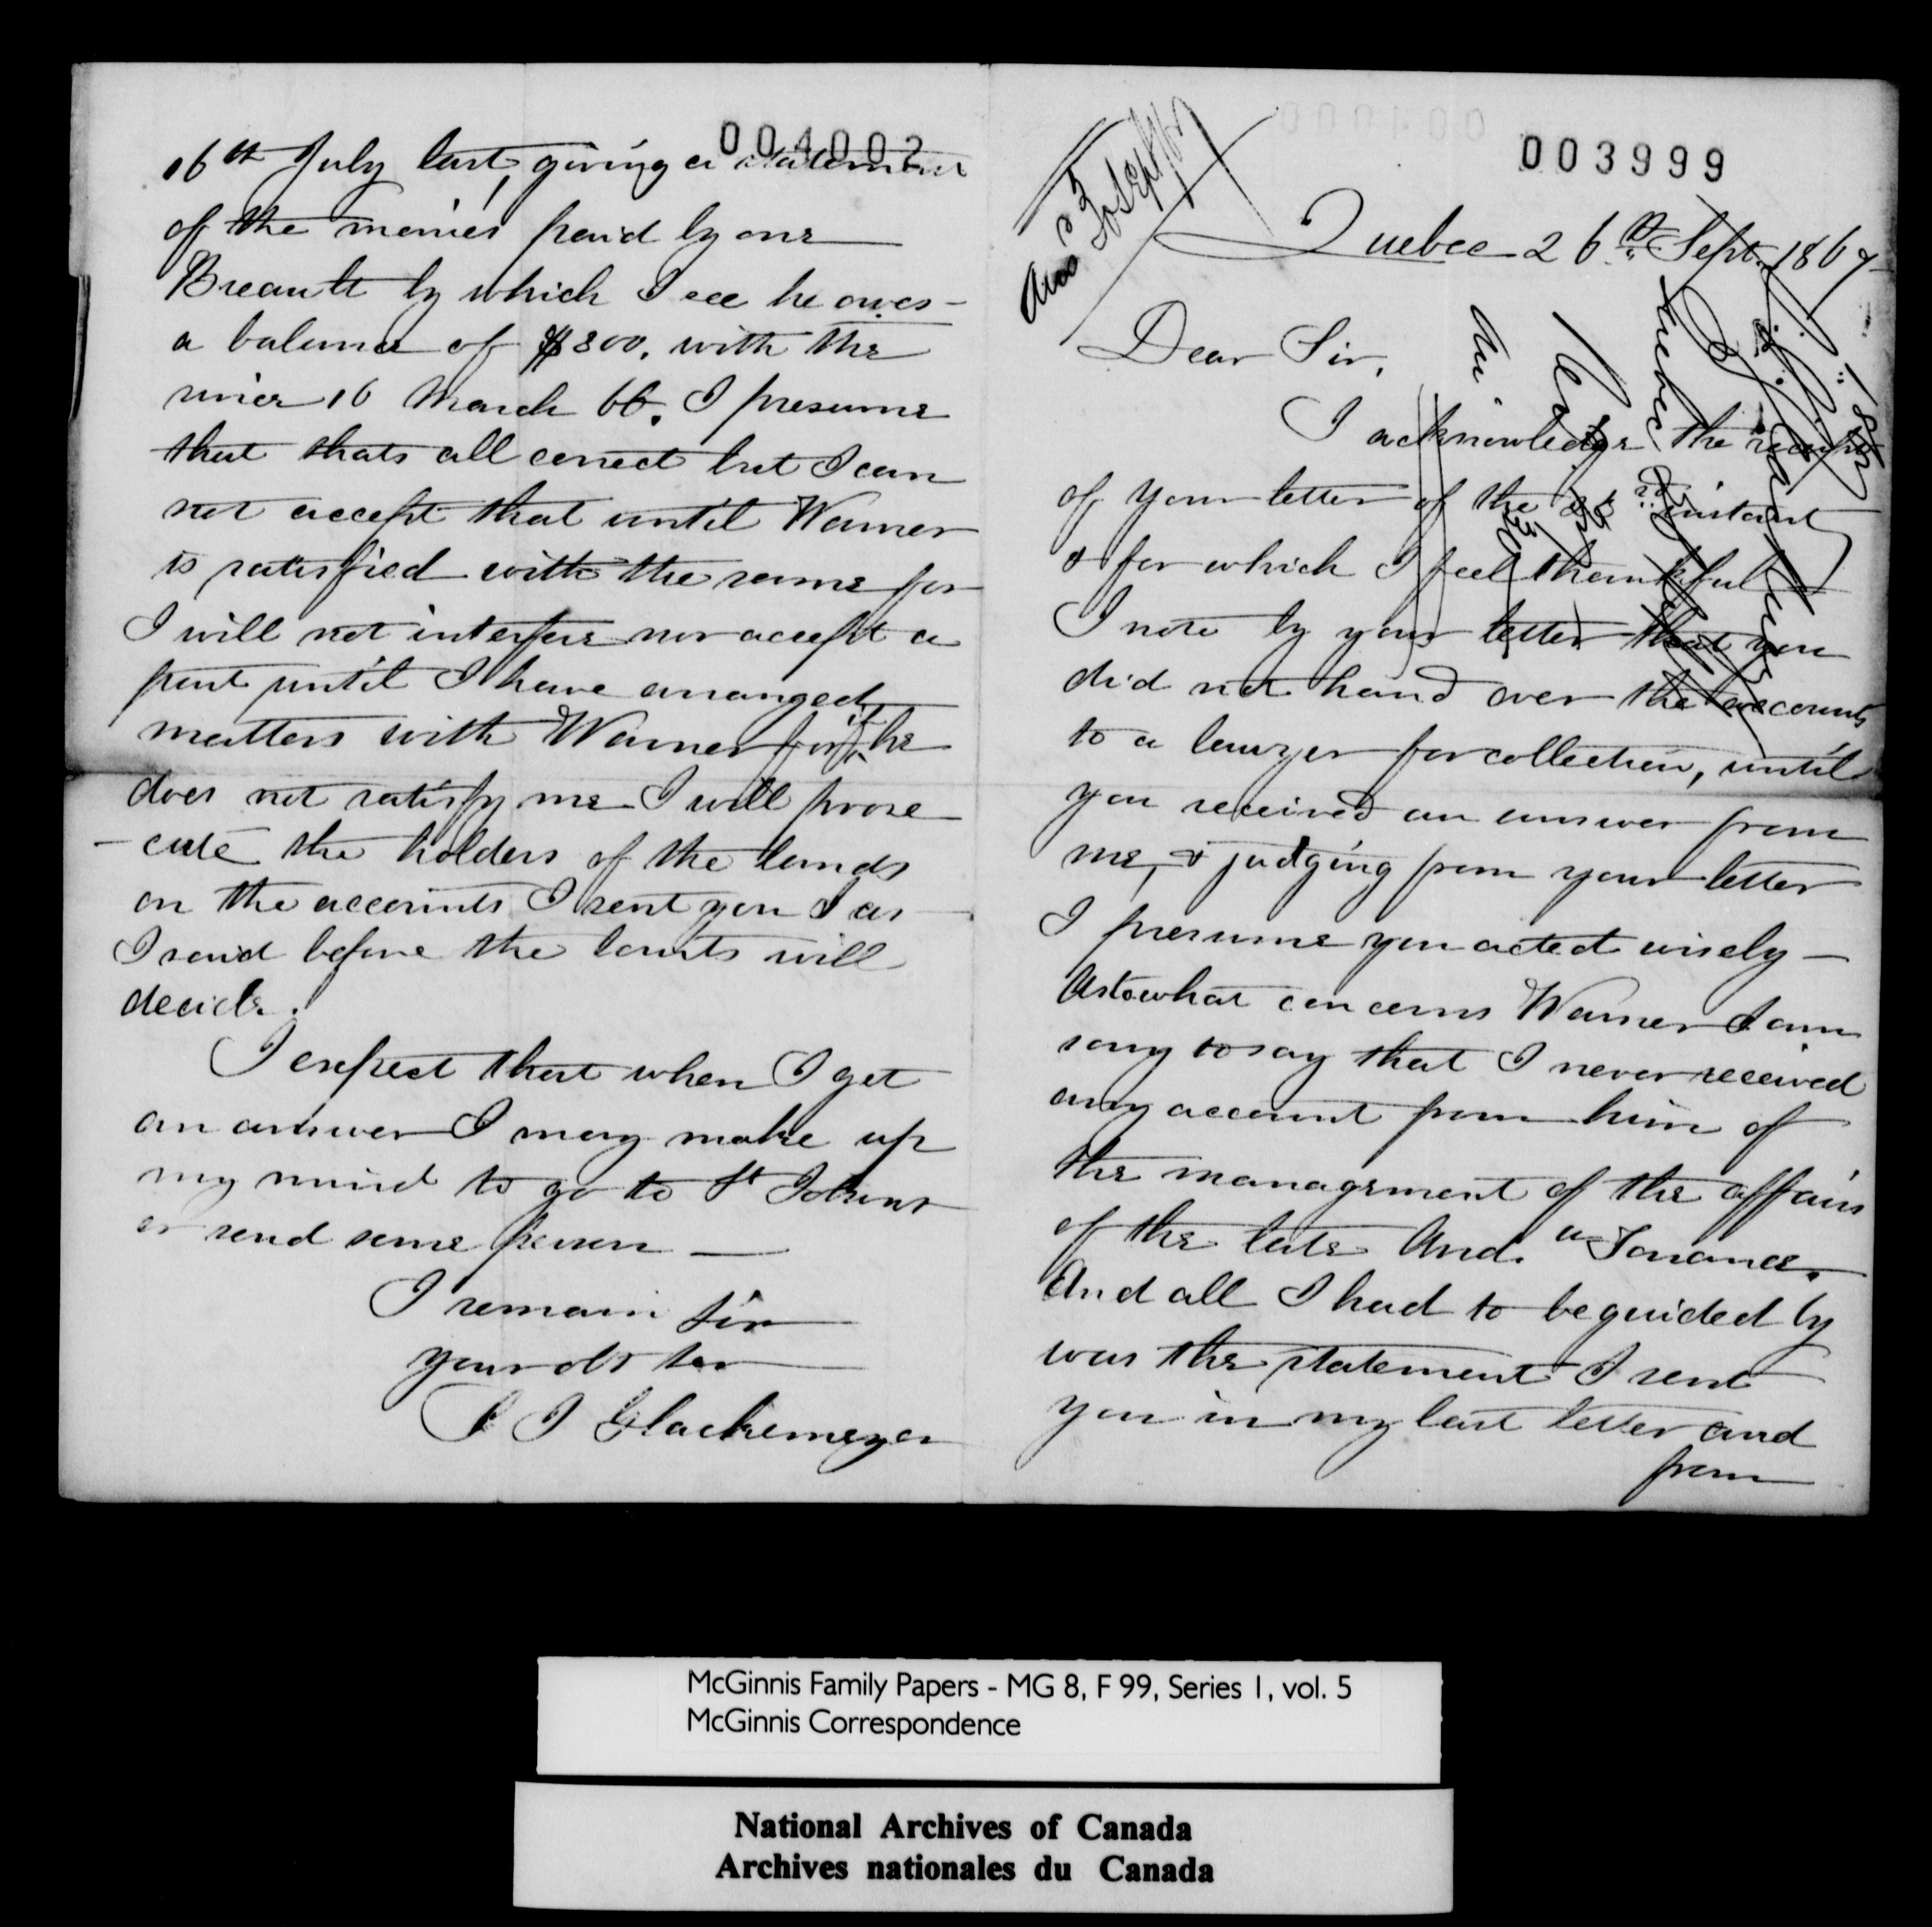 004002
16th July last, giving a statement
of the monies paid by one
Breault by which I see he owes
a balance of $800. with the
since 16 March 66. I presume
that thats all correct but I can
not accept that until Warner
is satisfied with the same for
I will not interfere nor accept a
part until I have arranged
matters with Warner for if he
does not satisfy me I will prose
-cute the holders of the lands
on the accounts I sent you & as
I said before the Courts will
decide.
I expect that when I get
an answer I may make up
my mind to go to St Johns
or send some person —
I remain Sir
your ob ser
Glackemeyer
003999
Ans 30 Sept/67
Quebec 26th Sept. 1867
Dear Sir,
I acknowledge the receipt
of your letter of the 23rd instant
& for which I feel thankful
I note by your letter that you
did not hand over the accounts
to a lawyer for collection, until
you received an answer from
me, & judging from your letter
I presume you acted wisely —
As to what concerns Warner I am
sorry to say that I never received
any account from him of
the management of the affairs
of the late And. Torrance.
And all I had to be guided by
was the statement I sent
you in my last letter and
from
McGinnis Family Papers - MG 8, F 99, Series 1, vol. 5
McGinnis Correspondence
National Archives of Canada
Archives nationales du Canada